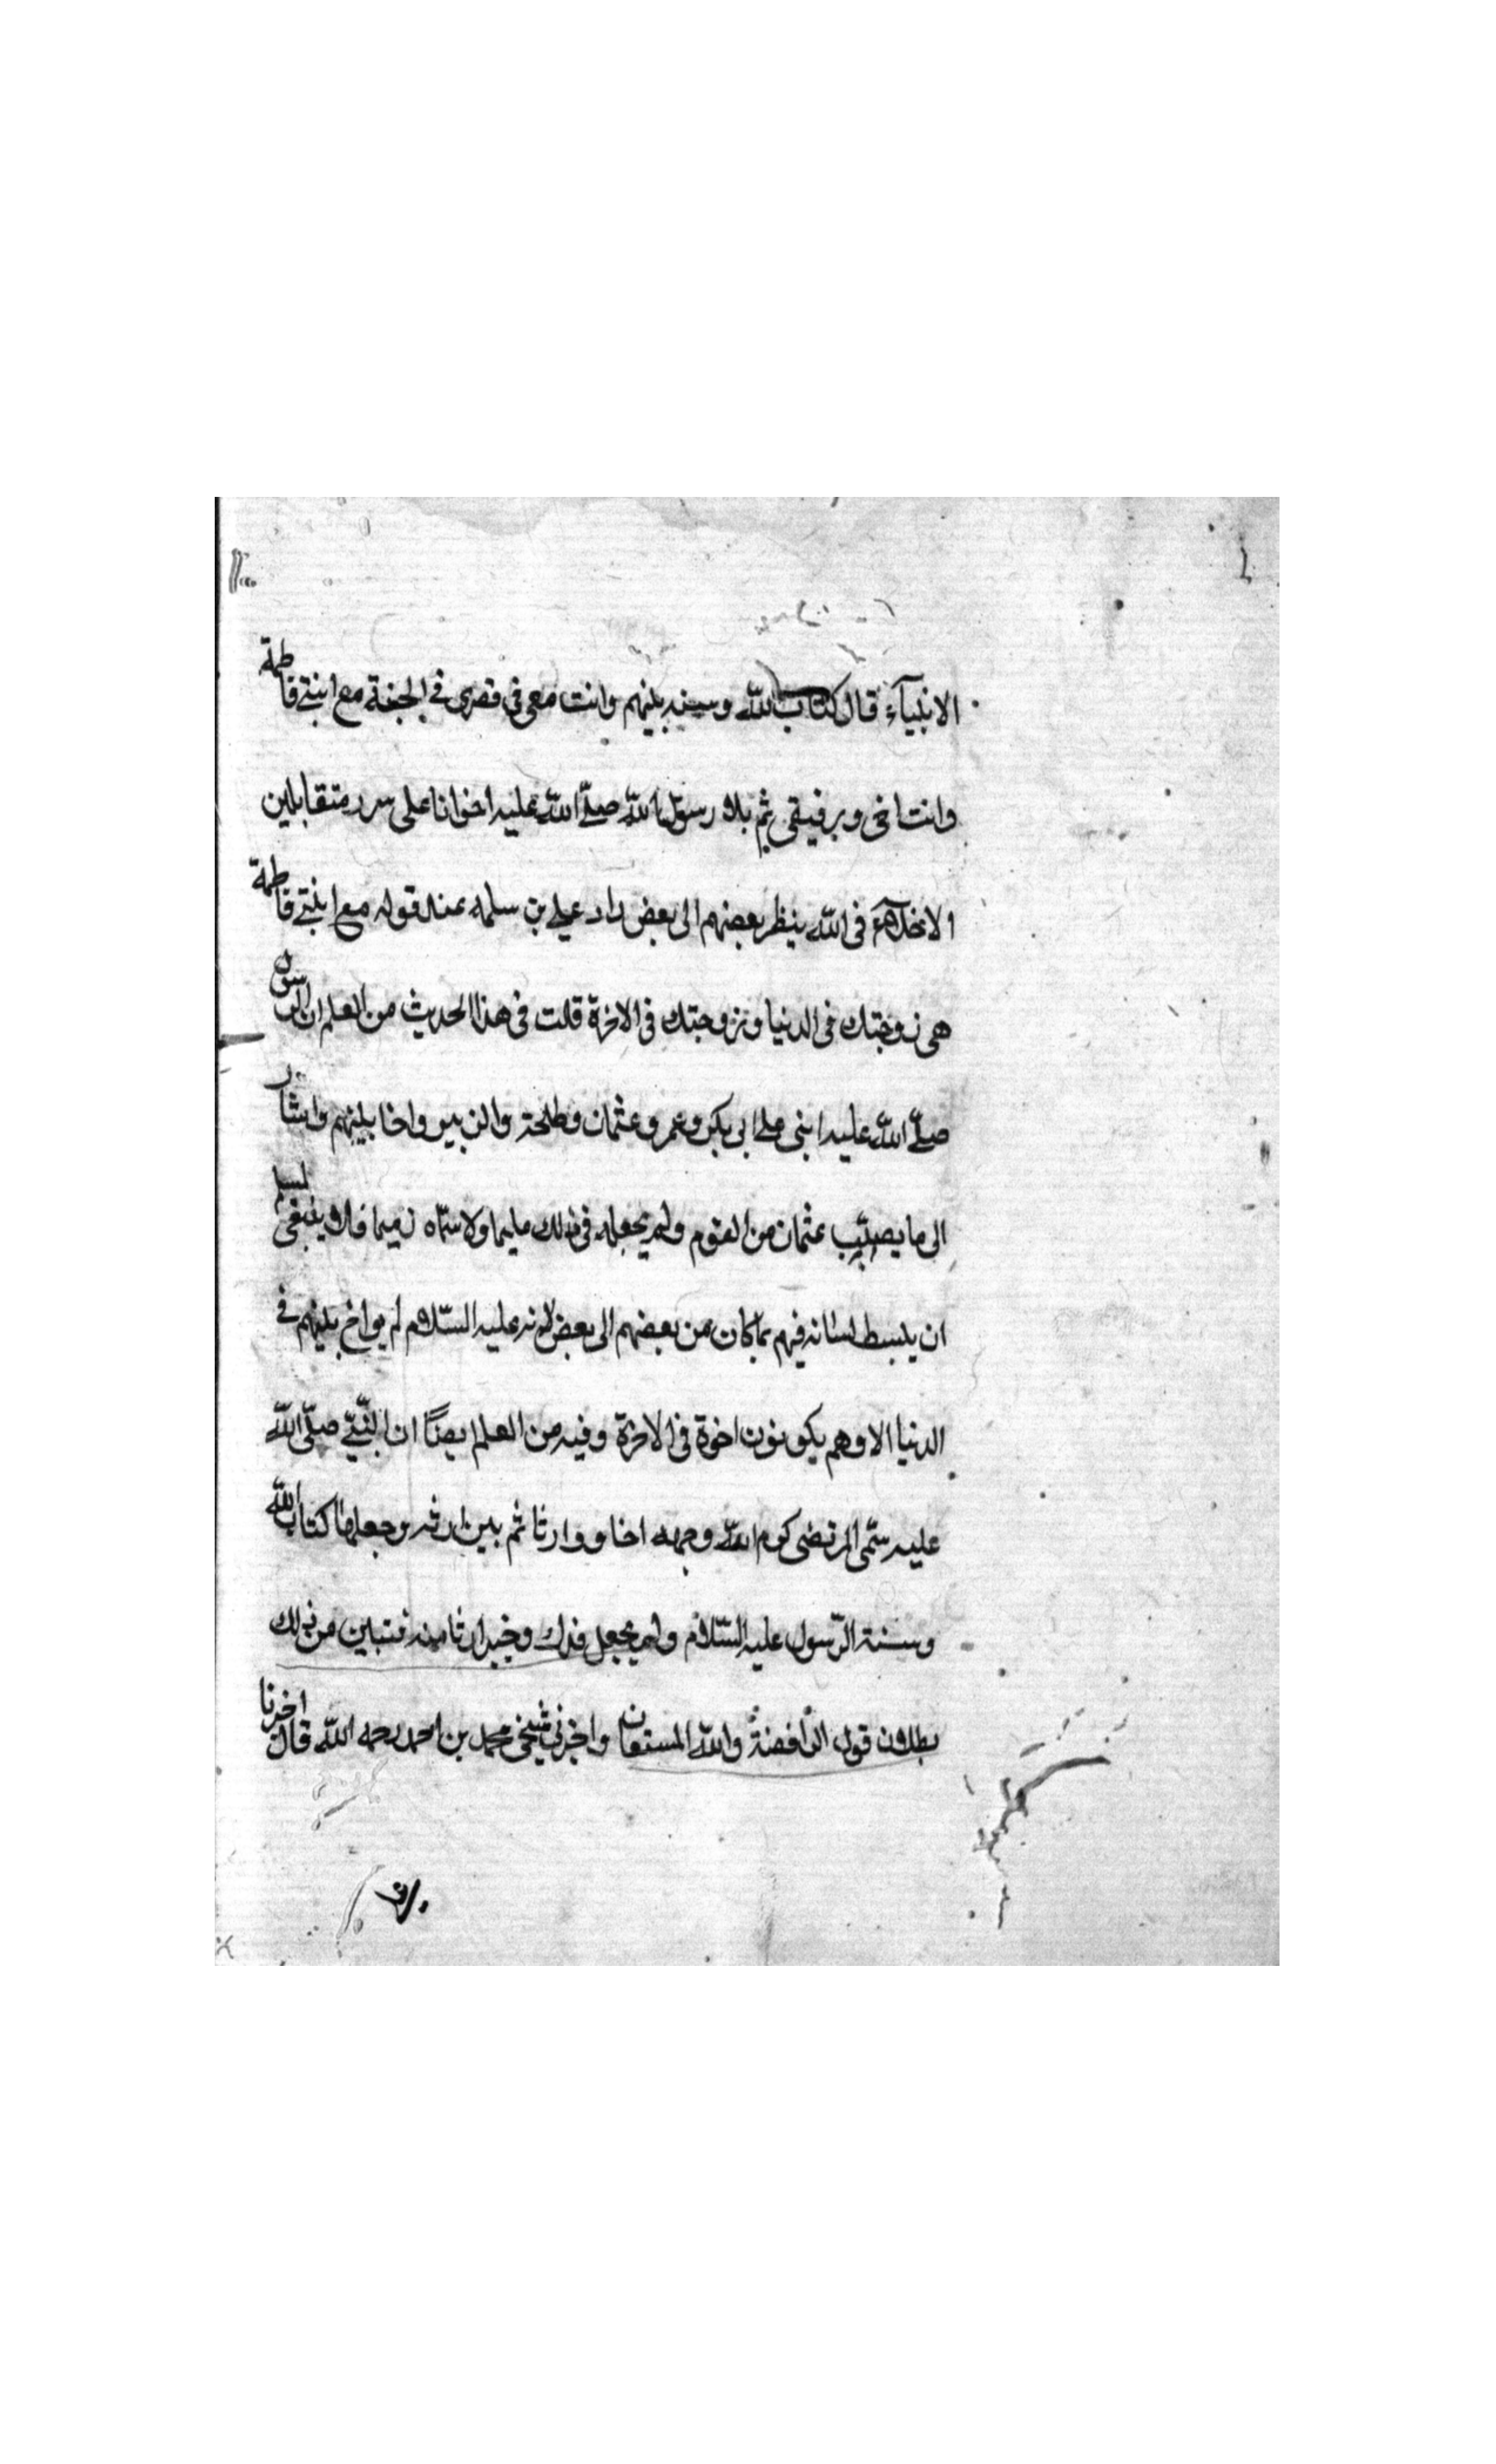 الانبياء قال كتاب الله وسنه بينهم وانت معى فى قصرى فى الجنة مع ابنتى فاطمة
وانت اخى ورفيقى ثم تلا رسول الله صلى الله عليه اخوانا على سرر متقابلين
الاخلاء فى الله ينظر بعضهم الى بعض زاد على بن سلمه عند قوله مع ابنتى فاطمة
هى زوجتك فى الدنيا وزوجتك فى الاخرة قلت فى هذا الحديث من العلم ان الرسول
صلى الله عليه اثنى على ابى بكر وعمر وعثمان وطلحة والزبير واخا بينهم واشار
الى ما يصيب عثمان من القوم ولم يجعله فى ذلك مليما ولا سماه ذميما فلا ينبغى لمسلم
ان يبسط لسانه فيهم بما كان من بعضهم الى بعض لانه عليه السلام لم يواخ بينهم فى
الدنيا الا وهم يكونون اخوة فى الاخرة وفيه من العلم ايضًا ان النبى صلى الله
عليه سمى المرتضى كرم الله وجهه اخا ووارثا ثم بين ارثه وجعلها كتاب الله
وسنة الرسول عليه السلام ولم يجعل فدك وخيبر ارثا منه فتبين من ذلك
بطلان قول الرافضة والله المستعان واخبرنى شيخى محمد بن احمد رحمه الله قال اخبرنا